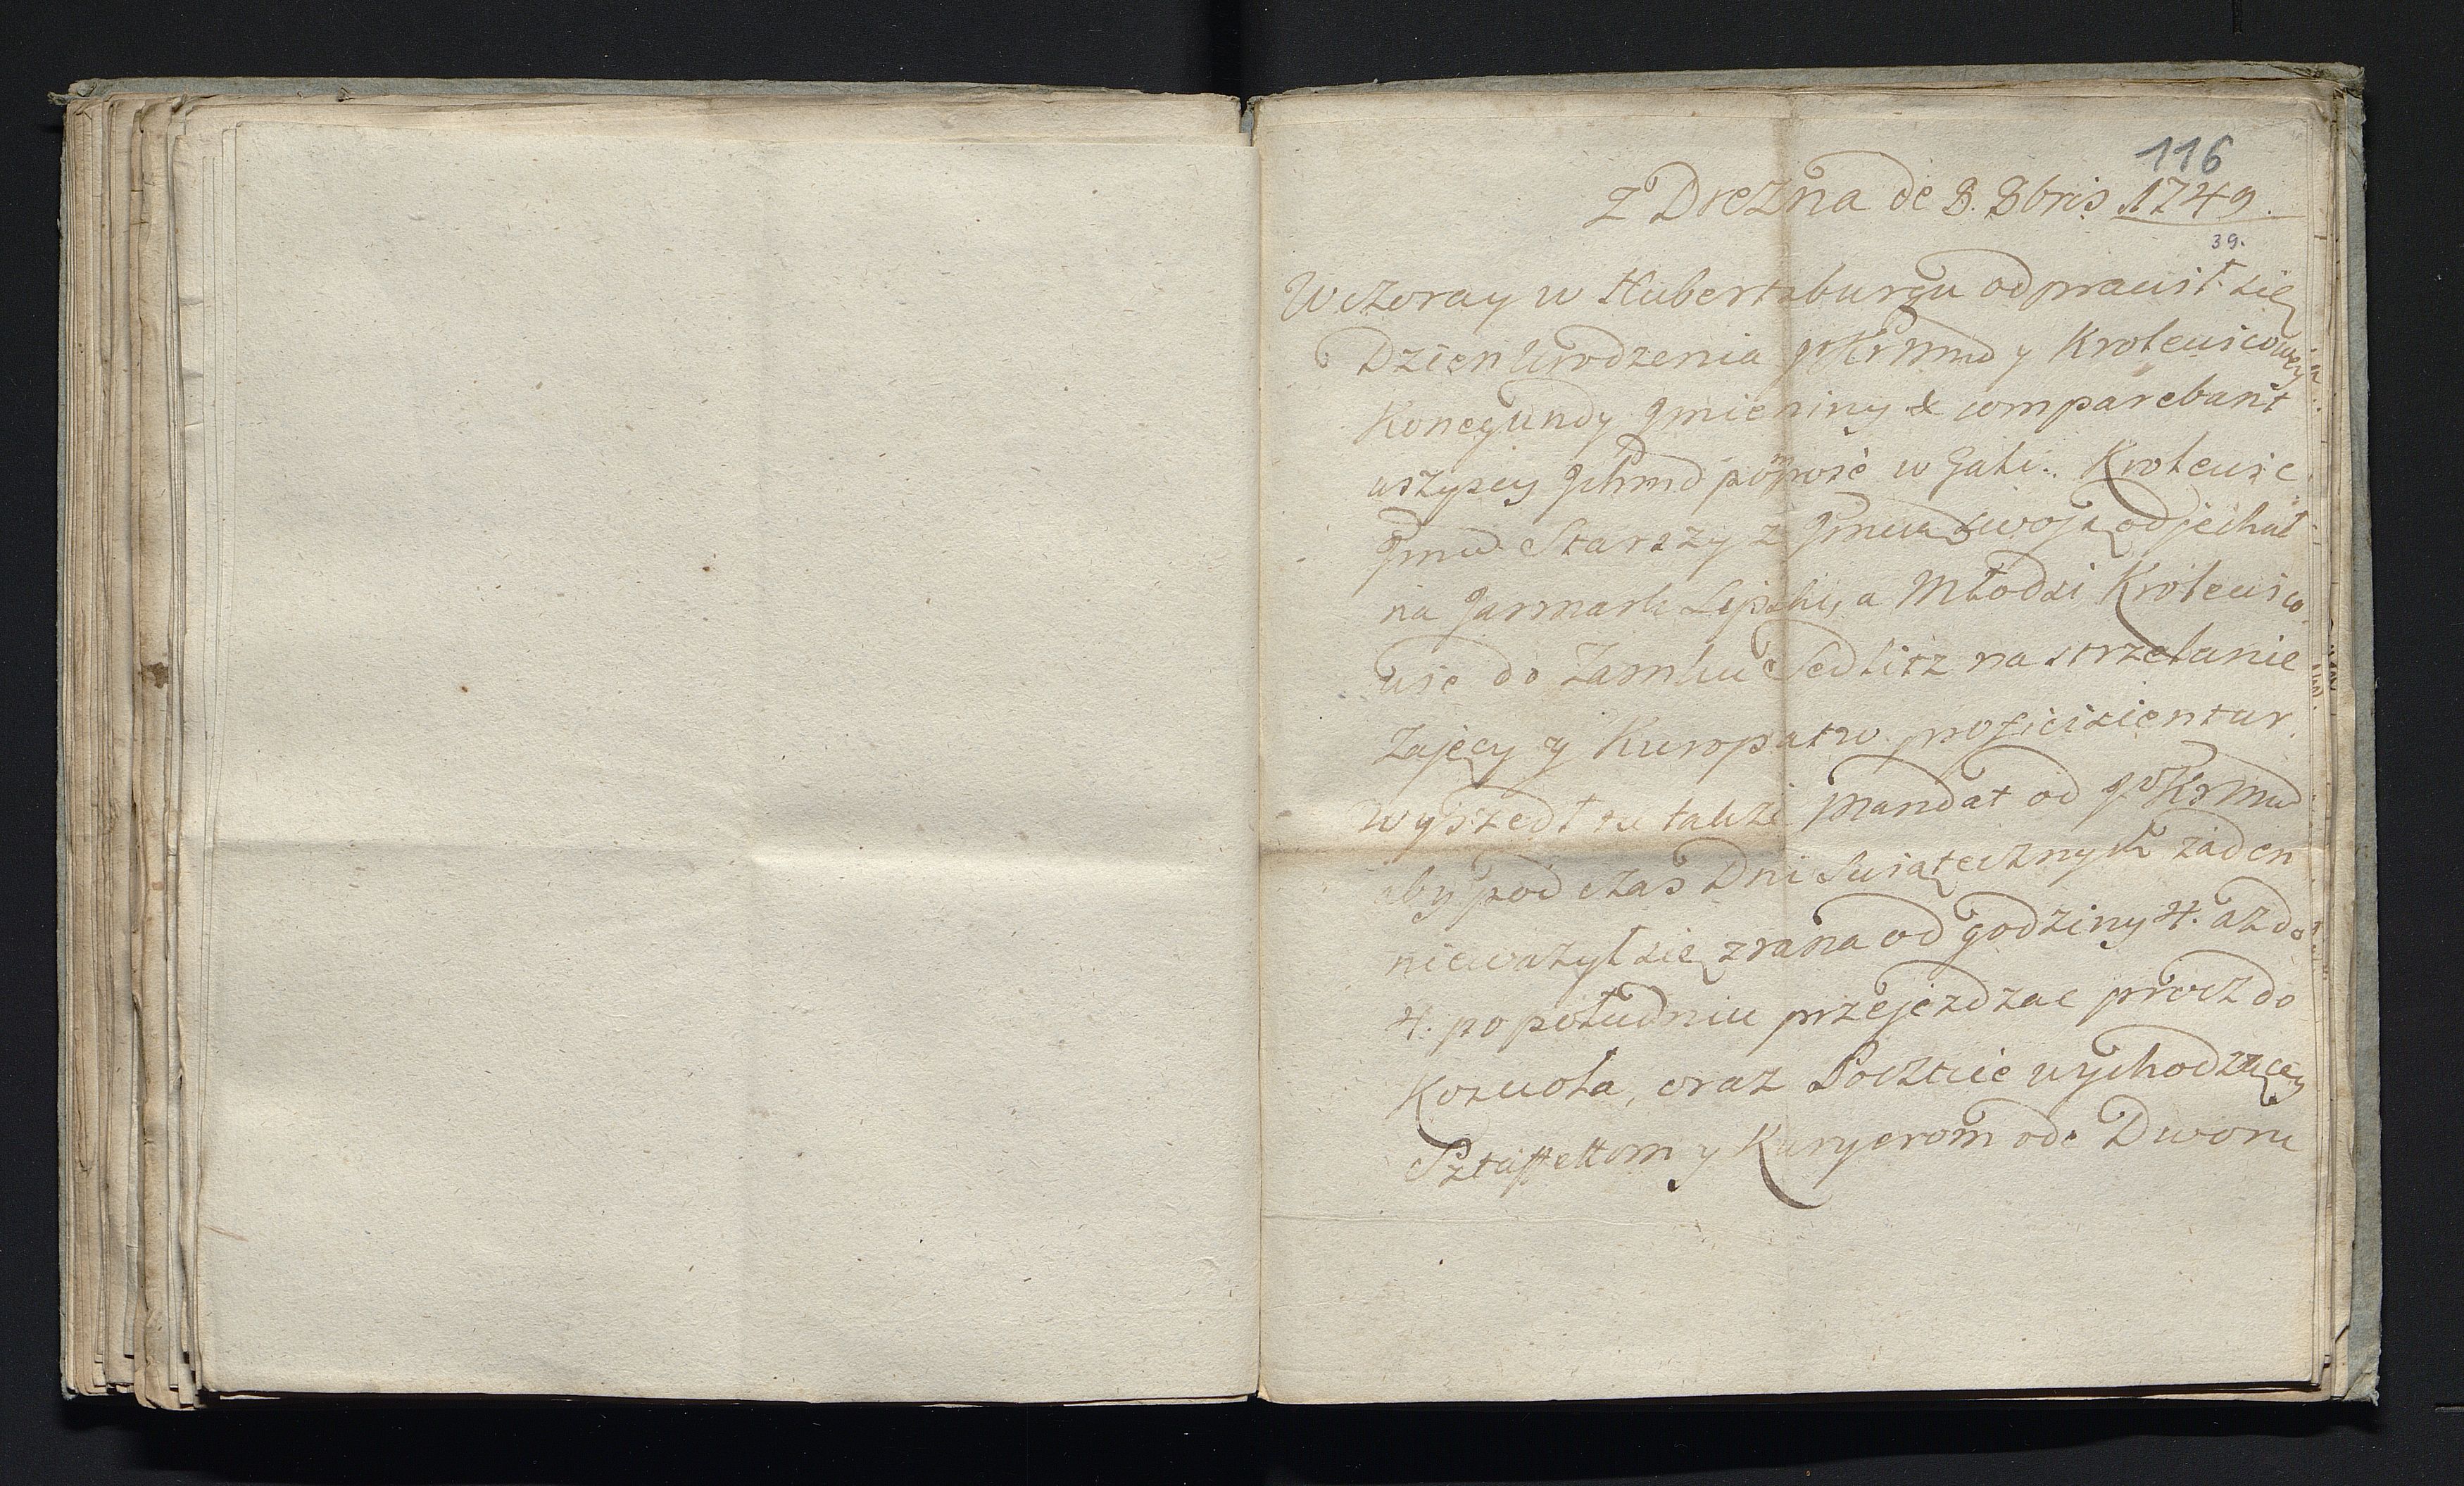 116
Z Drezna de 8. 8bris 1749.
39.
Wczoray w Hubertzburgu odprawił się
Dzien Urodzenia JoKrMwd y Krolewicowey
Konegundy Jmieniny & comparebant
wszyscy Jchmd w Gali. Krolewic
Jmwd Starszy z Jmwą swoją odjechał
na Jarmark Lipski, a Młodzi Krolewico
wie do Zamku Sedlitz na strzelanie
Zajęcy y Kuropatw proficiscientur.
Wyszedł tu także Mandat od JoKrMwd
aby pod czas Dni Swiątecznych żaden
nieważył się zrana od godziny 4. aż do
4. po południu przejezdzac procz do
Koscioła, oraz Poczcie wychodzącey
Sztaffettom y Kuryerom od Dworu